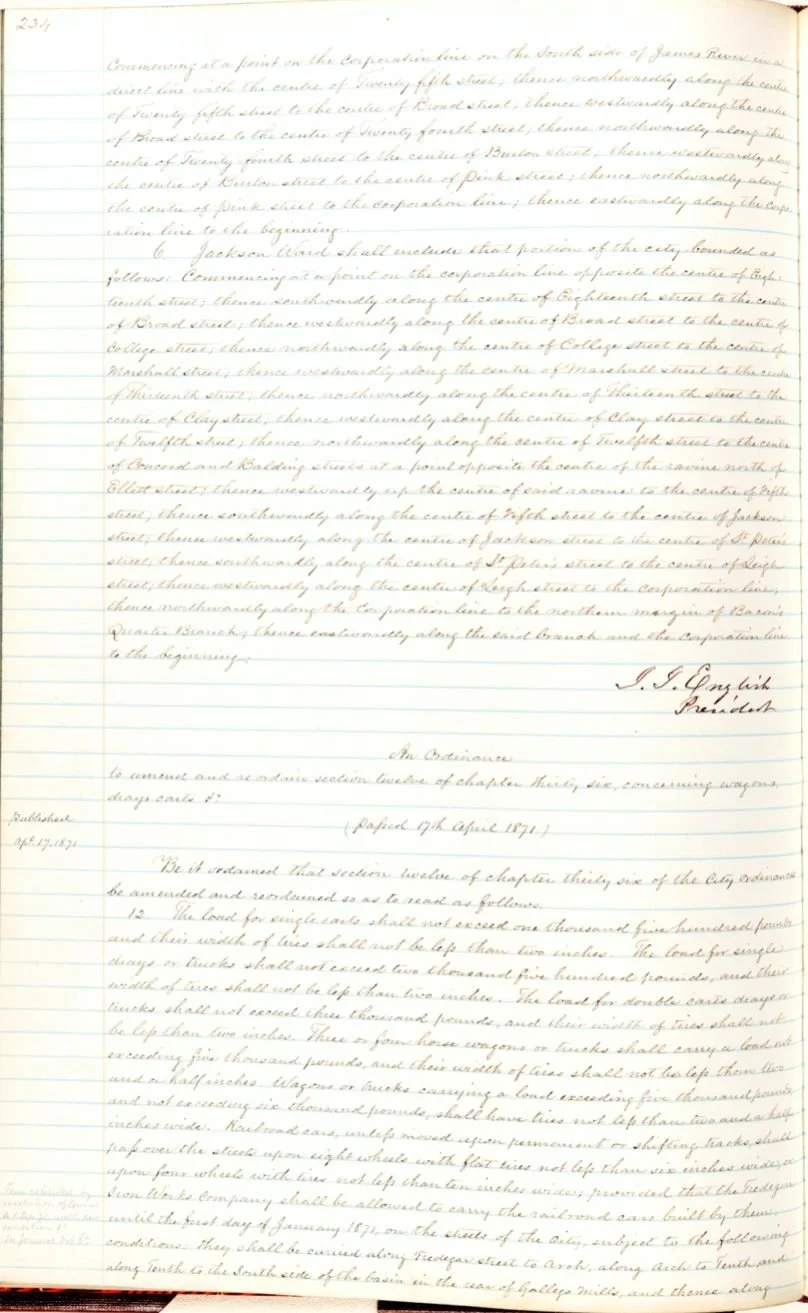 234
Commencing at a point on the corporation line on the South side of James River in a
direct line with the centre of Twenty fifth street; thence northwardly along the centre
of Twenty fifth street to the centre of Broad street; thence westwardly along the centre
of Broad street to the centre of Twenty fourth street; thence northwardly along the
centre of Twenty fourth street to the centre of Burton street; thence westwardly along
the centre of Burton street to the centre of Pink street; thence northwardly along
the centre of Pink street to the corporation line; thence eastwardly along the corpo-
ration line to the beginning.
6. Jackson Ward shall include that portion of the city bounded as
follows: Commencing at a point on the corporation line opposite the centre of Eigh-
teenth street; thence southwardly along the centre of Eighteenth street to the centre
of Broad street; thence westwardly along the centre of Broad street to the centre of
College street; thence northwardly along the centre of College street to the centre of
Marshall street; thence westwardly along the centre of Marshall street to the centre
of Thirteenth street; thence northwardly along the centre of Thirteenth street to the
centre of Clay street; thence westwardly along the centre of Clay street to the centre
of Twelfth street; thence northwardly along the centre of Twelfth street to the centre
of Concord and Balding streets at a point opposite the centre of the ravine north of
Elliott street; thence westwardly up the centre of said ravine to the centre of Fifth
street; thence southwardly along the centre of Fifth street to the centre of Jackson
street; thence westwardly along the centre of Jackson street to the centre of St Peter's
street; thence southwardly along the centre of St Peter's street to the centre of Leigh
street; thence westwardly along the centre of Leigh street to the corporation line;
thence northwardly along the Corporation line to the northern margin of Bacon's
Quarter Branch; thence eastwardly along the said branch and the corporation line
to the beginning.
J. J. English
President
An Ordinance
to amend and reordain section twelve of chapter thirty six, concerning wagons,
drays carts &c
Published
Apl. 17. 1871
(Passed 17th April 1871)
Be it ordained that section twelve of chapter thirty six of the City Ordinances
be amended and reordained so as to read as follows.
12. The load for single carts shall not exceed one thousand five hundred pounds
and their width of tires shall not be less than two inches. The load for single
drays or trucks shall not exceed two thousand five hundred pounds, and their
width of tires shall not be less than two inches. The load for double carts drays or
trucks, shall not exceed three thousand pounds, and their width of tires shall not
be less than two inches. Three or four horse wagons or trucks shall carry a load not
exceeding five thousand pounds, and their width of tires shall not be less than two
and a half inches. Wagons or trucks carrying a load exceeding five thousand pounds
and not exceeding six thousand pounds, shall have tires not less than two and a half
inches wide. Railroad cars, unless moved upon permanent or shifting tracks, shall
pass over the streets upon eight wheels with flat tires not less than six inches wide, or
upon four wheels with tires not less than ten inches wide; provided that the Tredegar
Iron Works Company shall be allowed to carry the railroad cars built by them,
until the first day of January 1871, on the streets of the City, subject to the following
conditions: They shall be carried along Tredegar street to Arch, along Arch to Tenth, and
along Tenth to the South side of the basin in the rear of Gallego Mills, and thence along